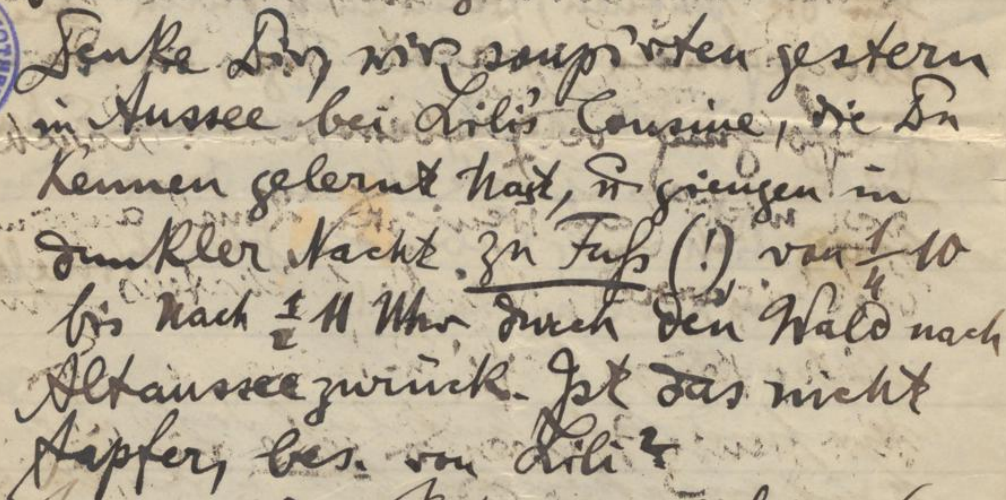 Denke Dir, wir soupirten gestern
in Aussee bei Lili's Cousine, die Du
kennen gelernt hast, u giengen in
dunkler Nacht zu Fuß (!) von 1/4 10
bis nach 1/2 11 Uhr durch den Wald nach
Altaussee zurück. Ist das nicht
tapfer, bes. von Lili?